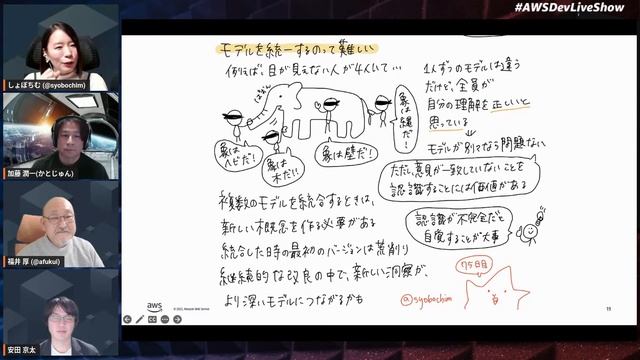 #AWSDevLiveShow
しょぼちむ (@syobochim)
加藤 潤一(かとじゅん)
福井 厚(@afukui)
安田 京太
モデルを統一するのって難しい
例えば、目が見えない人が4人いて…
ぱおん
象はヘビだ!
象は木だ!!
象は壁だ!
象は縄だ!
1人ずつのモデルは違う
だけど、全員が
自分の理解を正しいと
思っている
モデルが別々なら問題ない
ただし、意見が一致していないことを
認識することには価値がある
認識が不完全だと
自覚することが大事
複数のモデルを統合するときは、
新しい概念を作る必要がある
統合した時の最初のバージョンは荒削り
継続的な改良の中で、新しい洞察が、
より深いモデルにつながるかも
75日目
@syobochim
aws